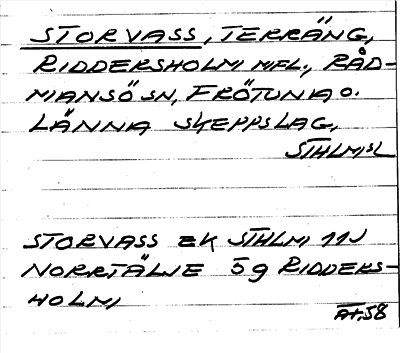 STORVASS, TERRÄNG,
RIDDERSHOLM M.FL., RÅD-
MANSÖ SN, FRÖTUNA O.
LÄNNA SKEPPSLAG,
STHLMS L
STORVASS EK STHLM 11J
NORRTÄLJE 5g RIDDERS-
HOLM,